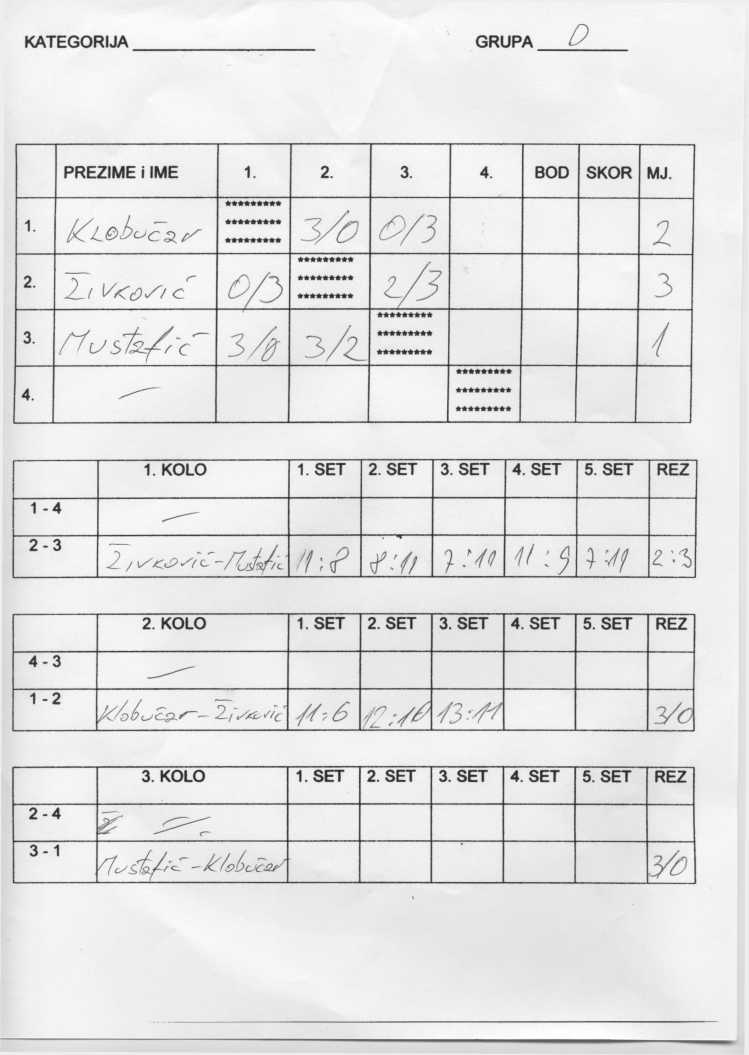 KATEGORIJA ____________________ GRUPA D
PREZIME i IME 1. 2. 3. 4. BOD SKOR MJ.
1. Klobučar ********* ********* ********* 3/0 0/3 2
2. Živković 0/3 ********* ********* ********* 2/3 3
3. Mustafić 3/0 3/2 ********* ********* ********* 1
4. — ********* ********* *********
1. KOLO 1. SET 2. SET 3. SET 4. SET 5. SET REZ
1 - 4 —
2 - 3 Živković-Mustafić 11:8 8:11 7:11 11:9 7:11 2:3
2. KOLO 1. SET 2. SET 3. SET 4. SET 5. SET REZ
4 - 3 —
1 - 2 Klobučar-Živković 11:6 12:10 13:11 3/0
3. KOLO 1. SET 2. SET 3. SET 4. SET 5. SET REZ
2 - 4 —
3 - 1 Mustafić-Klobučar 3/0